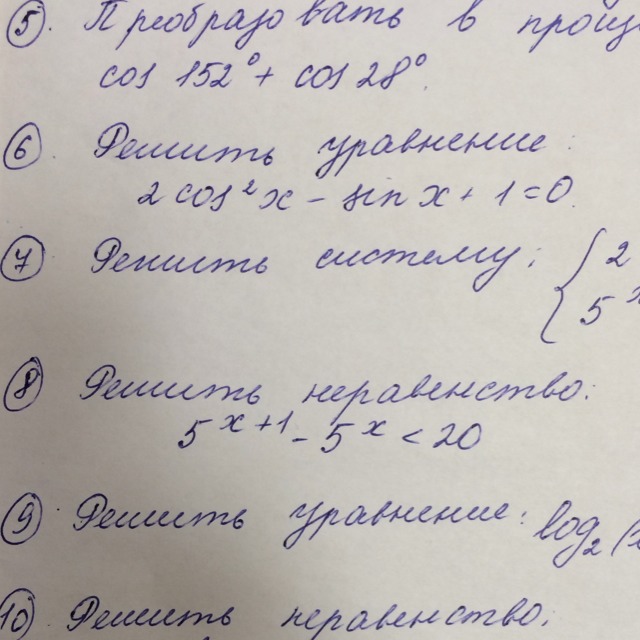 5. Преобразовать в произ
cos 152° + cos 28°.
6. Решить уравнение:
2 cos² x - sin x + 1 = 0.
7. Решить систему: { 2
5 x
8. Решить неравенство:
5 x+1 - 5 x < 20
9. Решить уравнение: log₂ (
10 Решить неравенство: